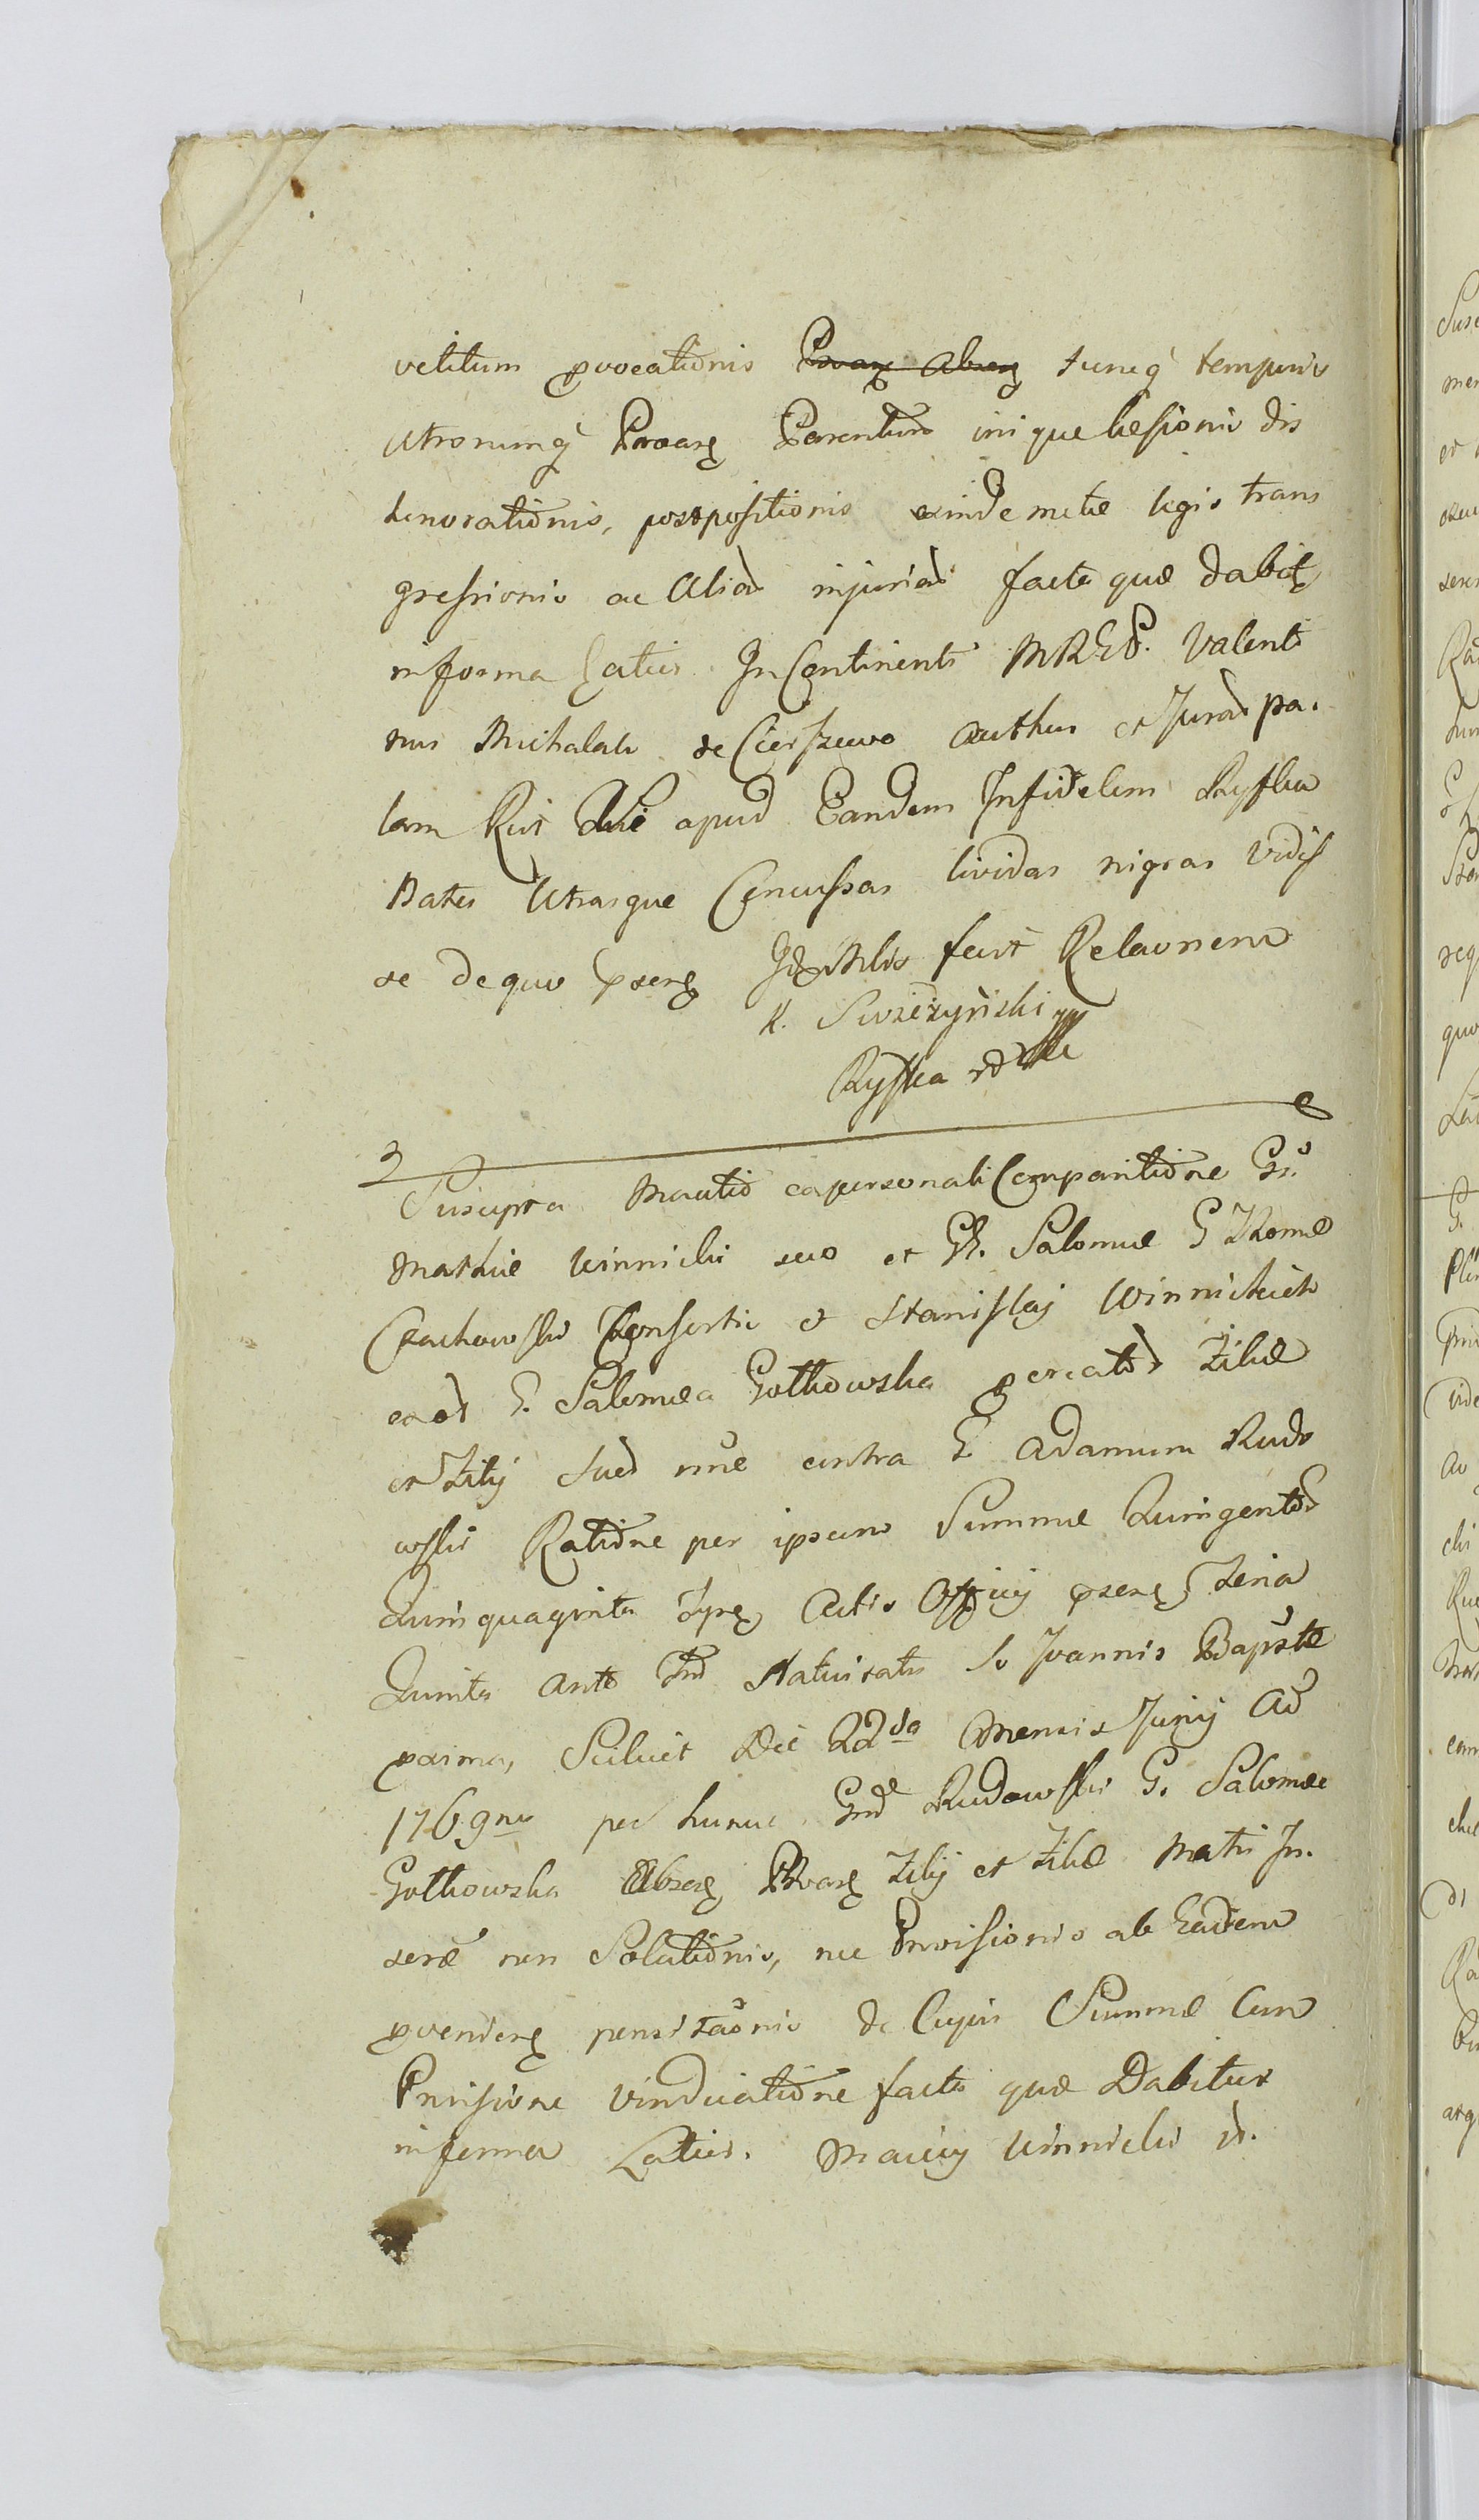 velitum pvocationis Pvarg Abreg tuncq temporis
utrorumq Pvarg Parentum inique lusionis dis
honorationis, postpositionis exinde metae legis trans
gressionis ac Aliar injuriar facta quae dabitg
in forma Latius. In Continenti MREG. Valenti
nus Michalak de Cierszewo authus et Jurad pa.
lam Rut Die apud Eandem Infidelem Ryfka
Nates Utrasque Concussas lividas nigras vidis
se de quo pseng fecit Relaonem
K. Swieżyński
Ryfka
3
Suscepta Mandto ex personali Comparitione Gs.
Mathiae Winnicki suo et GG. Salomeae G Thomae
Czachowski Consortis et Stanislaj Winnickich
exod G. Salomea Gotkowska pcreator Filiae
et Filij sued nne contra G Adamum Rudo
wski Ratione per ipsum Summae Quingentor
Quinquaginta Actis Officij pseng Feria
Quinta ante Nativitatis S Joannis Baptste
pxima, Scilicet Die 22da Mensis Junij AD
1769no per hunc Gnd Rudowski G. Salomeae
Gotkowska Abreg Pvarg Filij et Filiae Matri In.
serae non Solutionis, nec Provisionis ab Eadem
pvenieng pensitaonis de Cujus Summae Cum
Provisione vindicatione facta quae Dabitur
in forma Latius. Maciey Winnicki